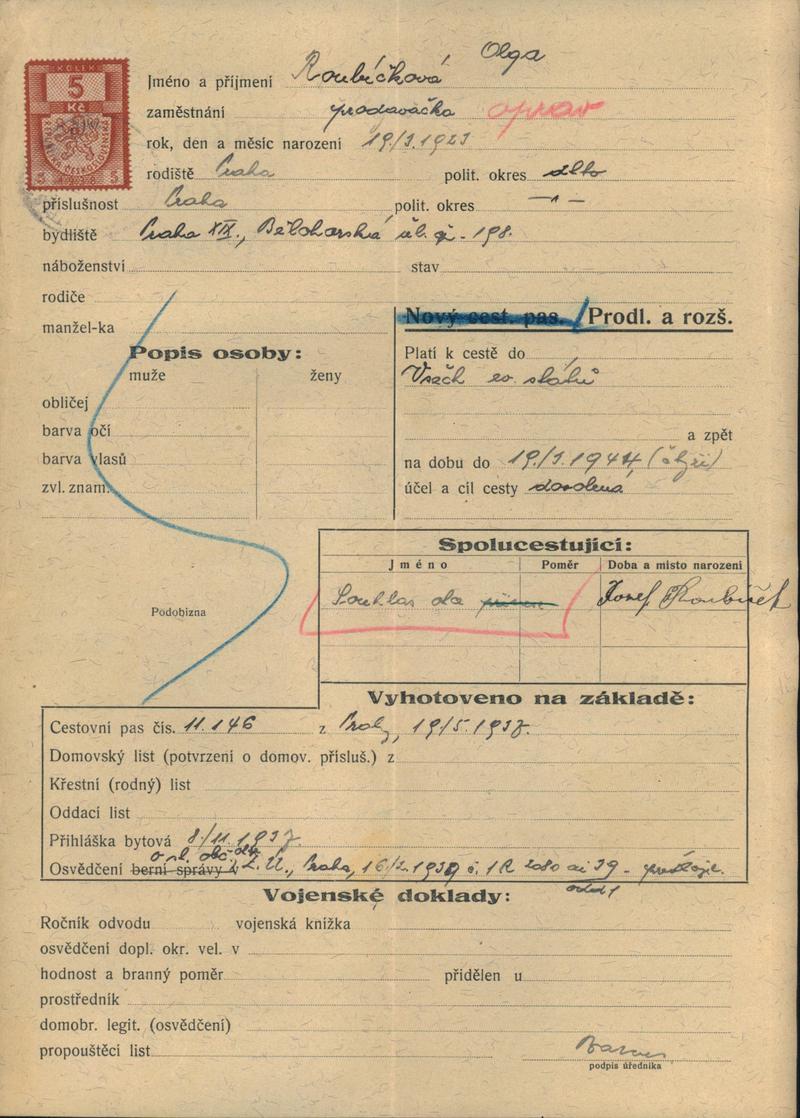 KOLEK
5
Kč
Jméno a příjmení Roubíčková Olga
zaměstnání prodavačka oprav
rok, den a měsíc narození 19/3.1923
rodiště Praha polit. okres dtto
příslušnost Praha polit. okres —"—
bydliště Praha XIX., Bělohorská ul. č. 198.
náboženství stav
rodiče
manžel-ka
Nový cest. pas. / Prodl. a rozš.
Popis osoby:
muže ženy
obličej
barva očí
barva vlasů
zvl. znam.
Platí k cestě do
Všech ev. států
a zpět
na dobu do 19/3.1944
účel a cíl cesty dovolená
Spolucestující:
Jméno Poměr Doba a místo narození
Souhlas otce Josef Roubíček
Podobizna
Vyhotoveno na základě:
Cestovní pas čís. 11.146 z 19/5.1937.
Domovský list (potvrzení o domov. přísluš.) z
Křestní (rodný) list
Oddací list
Přihláška bytová 8/11.1937.
Osvědčení berní správy v Praha, 16/2.1939 č. 1R 2080 ai 39
Vojenské doklady:
Ročník odvodu vojenská knížka
osvědčení dopl. okr. vel. v
hodnost a branný poměr přidělen u
prostředník
domobr. legit. (osvědčení)
propouštěcí list
podpis úředníka